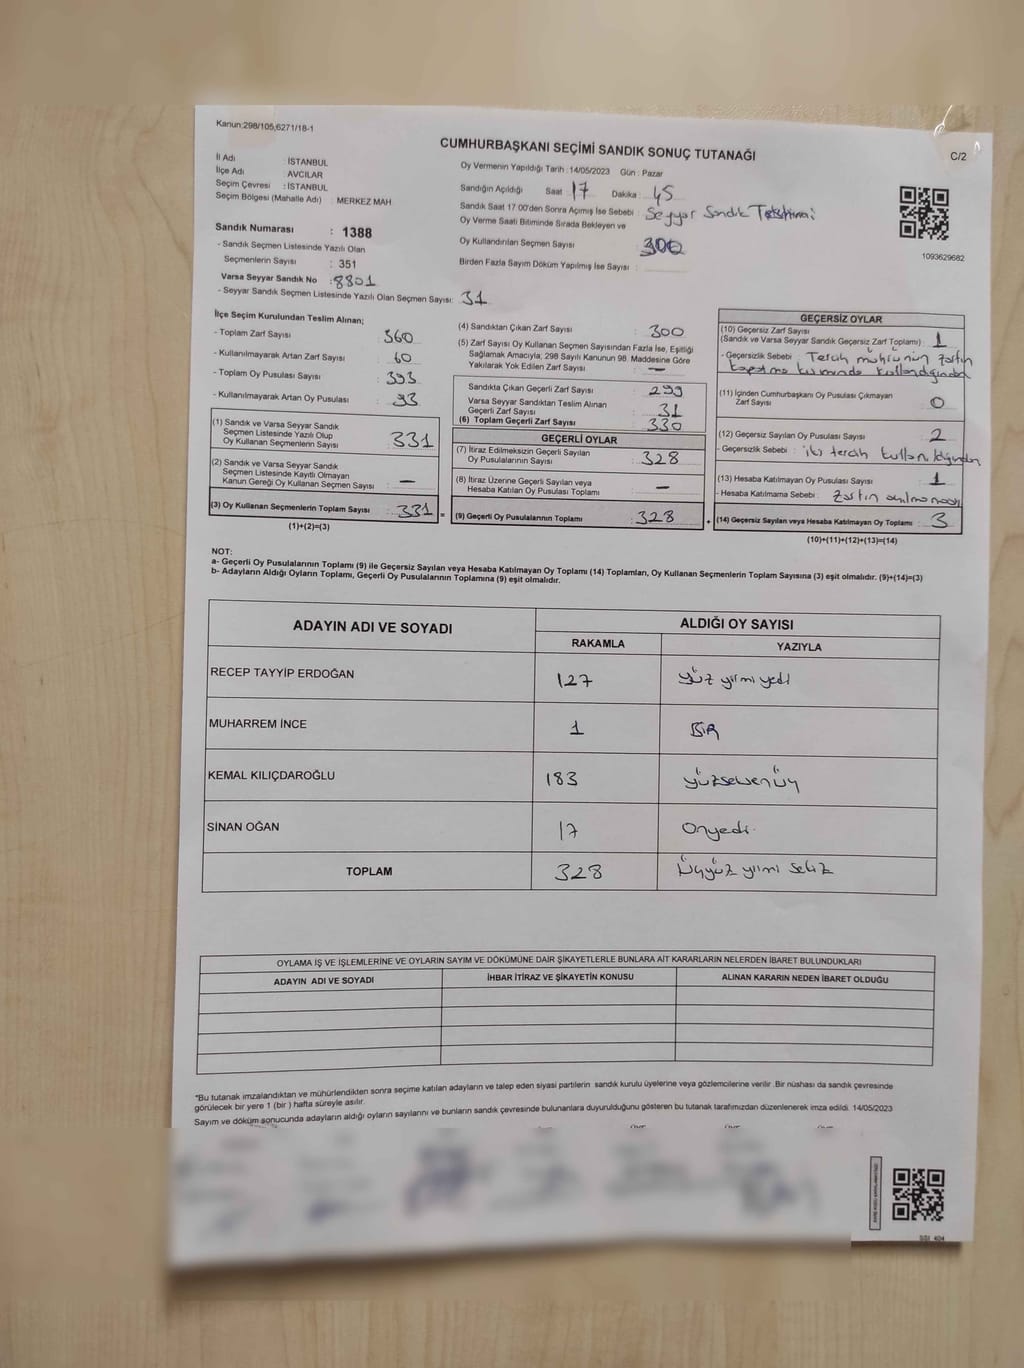 Kanun:298/105,6271/18-1
CUMHURBAŞKANI SEÇİMİ SANDIK SONUÇ TUTANAĞI
C/2
İl Adı : İSTANBUL
İlçe Adı : AVCILAR
Seçim Çevresi : İSTANBUL
Seçim Bölgesi (Mahalle Adı) : MERKEZ MAH
Sandık Numarası : 1388
- Sandık Seçmen Listesinde Yazılı Olan
Seçmenlerin Sayısı : 351
Varsa Seyyar Sandık No : 8801
- Seyyar Sandık Seçmen Listesinde Yazılı Olan Seçmen Sayısı: 31
Oy Vermenin Yapıldığı Tarih : 14/05/2023 Gün : Pazar
Sandığın Açıldığı Saat : 17 Dakika : 45
Sandık Saat 17.00'den Sonra Açımış İse Sebebi : Seyyar Sandık
Oy Verme Saati Bitiminde Sırada Bekleyen ve
Oy Kullandırılan Seçmen Sayısı : 300
Birden Fazla Sayım Döküm Yapılmış İse Sayısı :
1093629682
İlçe Seçim Kurulundan Teslim Alınan;
- Toplam Zarf Sayısı : 360
- Kullanılmayarak Artan Zarf Sayısı : 60
- Toplam Oy Pusulası Sayısı : 393
- Kullanılmayarak Artan Oy Pusulası : 93
(1) Sandık ve Varsa Seyyar Sandık
Seçmen Listesinde Yazılı Olup
Oy Kullanan Seçmenlerin Sayısı : 331
(2) Sandık ve Varsa Seyyar Sandık
Seçmen Listesinde Kayıtlı Olmayan
Kanun Gereği Oy Kullanan Seçmen Sayısı : —
(3) Oy Kullanan Seçmenlerin Toplam Sayısı : 331 =
(1)+(2)=(3)
(4) Sandıktan Çıkan Zarf Sayısı : 300
(5) Zarf Sayısı Oy Kullanan Seçmen Sayısından Fazla İse, Eşitliği
Sağlamak Amacıyla, 298 Sayılı Kanunun 98. Maddesine Göre
Yakılarak Yok Edilen Zarf Sayısı : —
Sandıkta Çıkan Geçerli Zarf Sayısı : 299
Varsa Seyyar Sandıktan Teslim Alınan
Geçerli Zarf Sayısı : 31
(6) Toplam Geçerli Zarf Sayısı : 330
GEÇERLİ OYLAR
(7) İtiraz Edilmeksizin Geçerli Sayılan
Oy Pusulalarının Sayısı : 328
(8) İtiraz Üzerine Geçerli Sayılan veya
Hesaba Katılan Oy Pusulası Toplamı : —
(9) Geçerli Oy Pusulalarının Toplamı : 328 +
GEÇERSİZ OYLAR
(10) Geçersiz Zarf Sayısı
(Sandık ve Varsa Seyyar Sandık Geçersiz Zarf Toplamı) : 1
- Geçersizlik Sebebi : Tercih mührünün zarfın
kapatma kısmında kullanıldığından
(11) İçinden Cumhurbaşkanı Oy Pusulası Çıkmayan
Zarf Sayısı : 0
(12) Geçersiz Sayılan Oy Pusulası Sayısı : 2
- Geçersizlik Sebebi : iki tercih kullanıldığından
(13) Hesaba Katılmayan Oy Pusulası Sayısı : 1
- Hesaba Katılmama Sebebi : Zarfın açılmaması
(14) Geçersiz Sayılan veya Hesaba Katılmayan Oy Toplamı : 3
(10)+(11)+(12)+(13)=(14)
NOT:
a- Geçerli Oy Pusulalarının Toplamı (9) ile Geçersiz Sayılan veya Hesaba Katılmayan Oy Toplamı (14) Toplamları, Oy Kullanan Seçmenlerin Toplam Sayısına (3) eşit olmalıdır. (9)+(14)=(3)
b- Adayların Aldığı Oyların Toplamı, Geçerli Oy Pusulalarının Toplamına (9) eşit olmalıdır.
ADAYIN ADI VE SOYADI
ALDIĞI OY SAYISI
RAKAMLA YAZIYLA
RECEP TAYYİP ERDOĞAN 127 yüz yirmi yedi
MUHARREM İNCE 1 BİR
KEMAL KILIÇDAROĞLU 183 yüzseksenüç
SİNAN OĞAN 17 Onyedi
TOPLAM 328 Üçyüz yirmi sekiz
OYLAMA İŞ VE İŞLEMLERİNE VE OYLARIN SAYIM VE DÖKÜMÜNE DAİR ŞİKAYETLERLE BUNLARA AİT KARARLARIN NELERDEN İBARET BULUNDUKLARI
ADAYIN ADI VE SOYADI İHBAR İTİRAZ VE ŞİKAYETİN KONUSU ALINAN KARARIN NEDEN İBARET OLDUĞU
*Bu tutanak imzalandıktan ve mühürlendikten sonra seçime katılan adayların ve talep eden siyasi partilerin sandık kurulu üyelerine veya gözlemcilerine verilir .Bir nüshası da sandık çevresinde
görülecek bir yere 1 (bir ) hafta süreyle asılır.
Sayım ve döküm sonucunda adayların aldığı oyların sayılarını ve bunların sandık çevresinde bulunanlara duyurulduğunu gösteren bu tutanak tarafımızdan düzenlenerek imza edildi. 14/05/2023